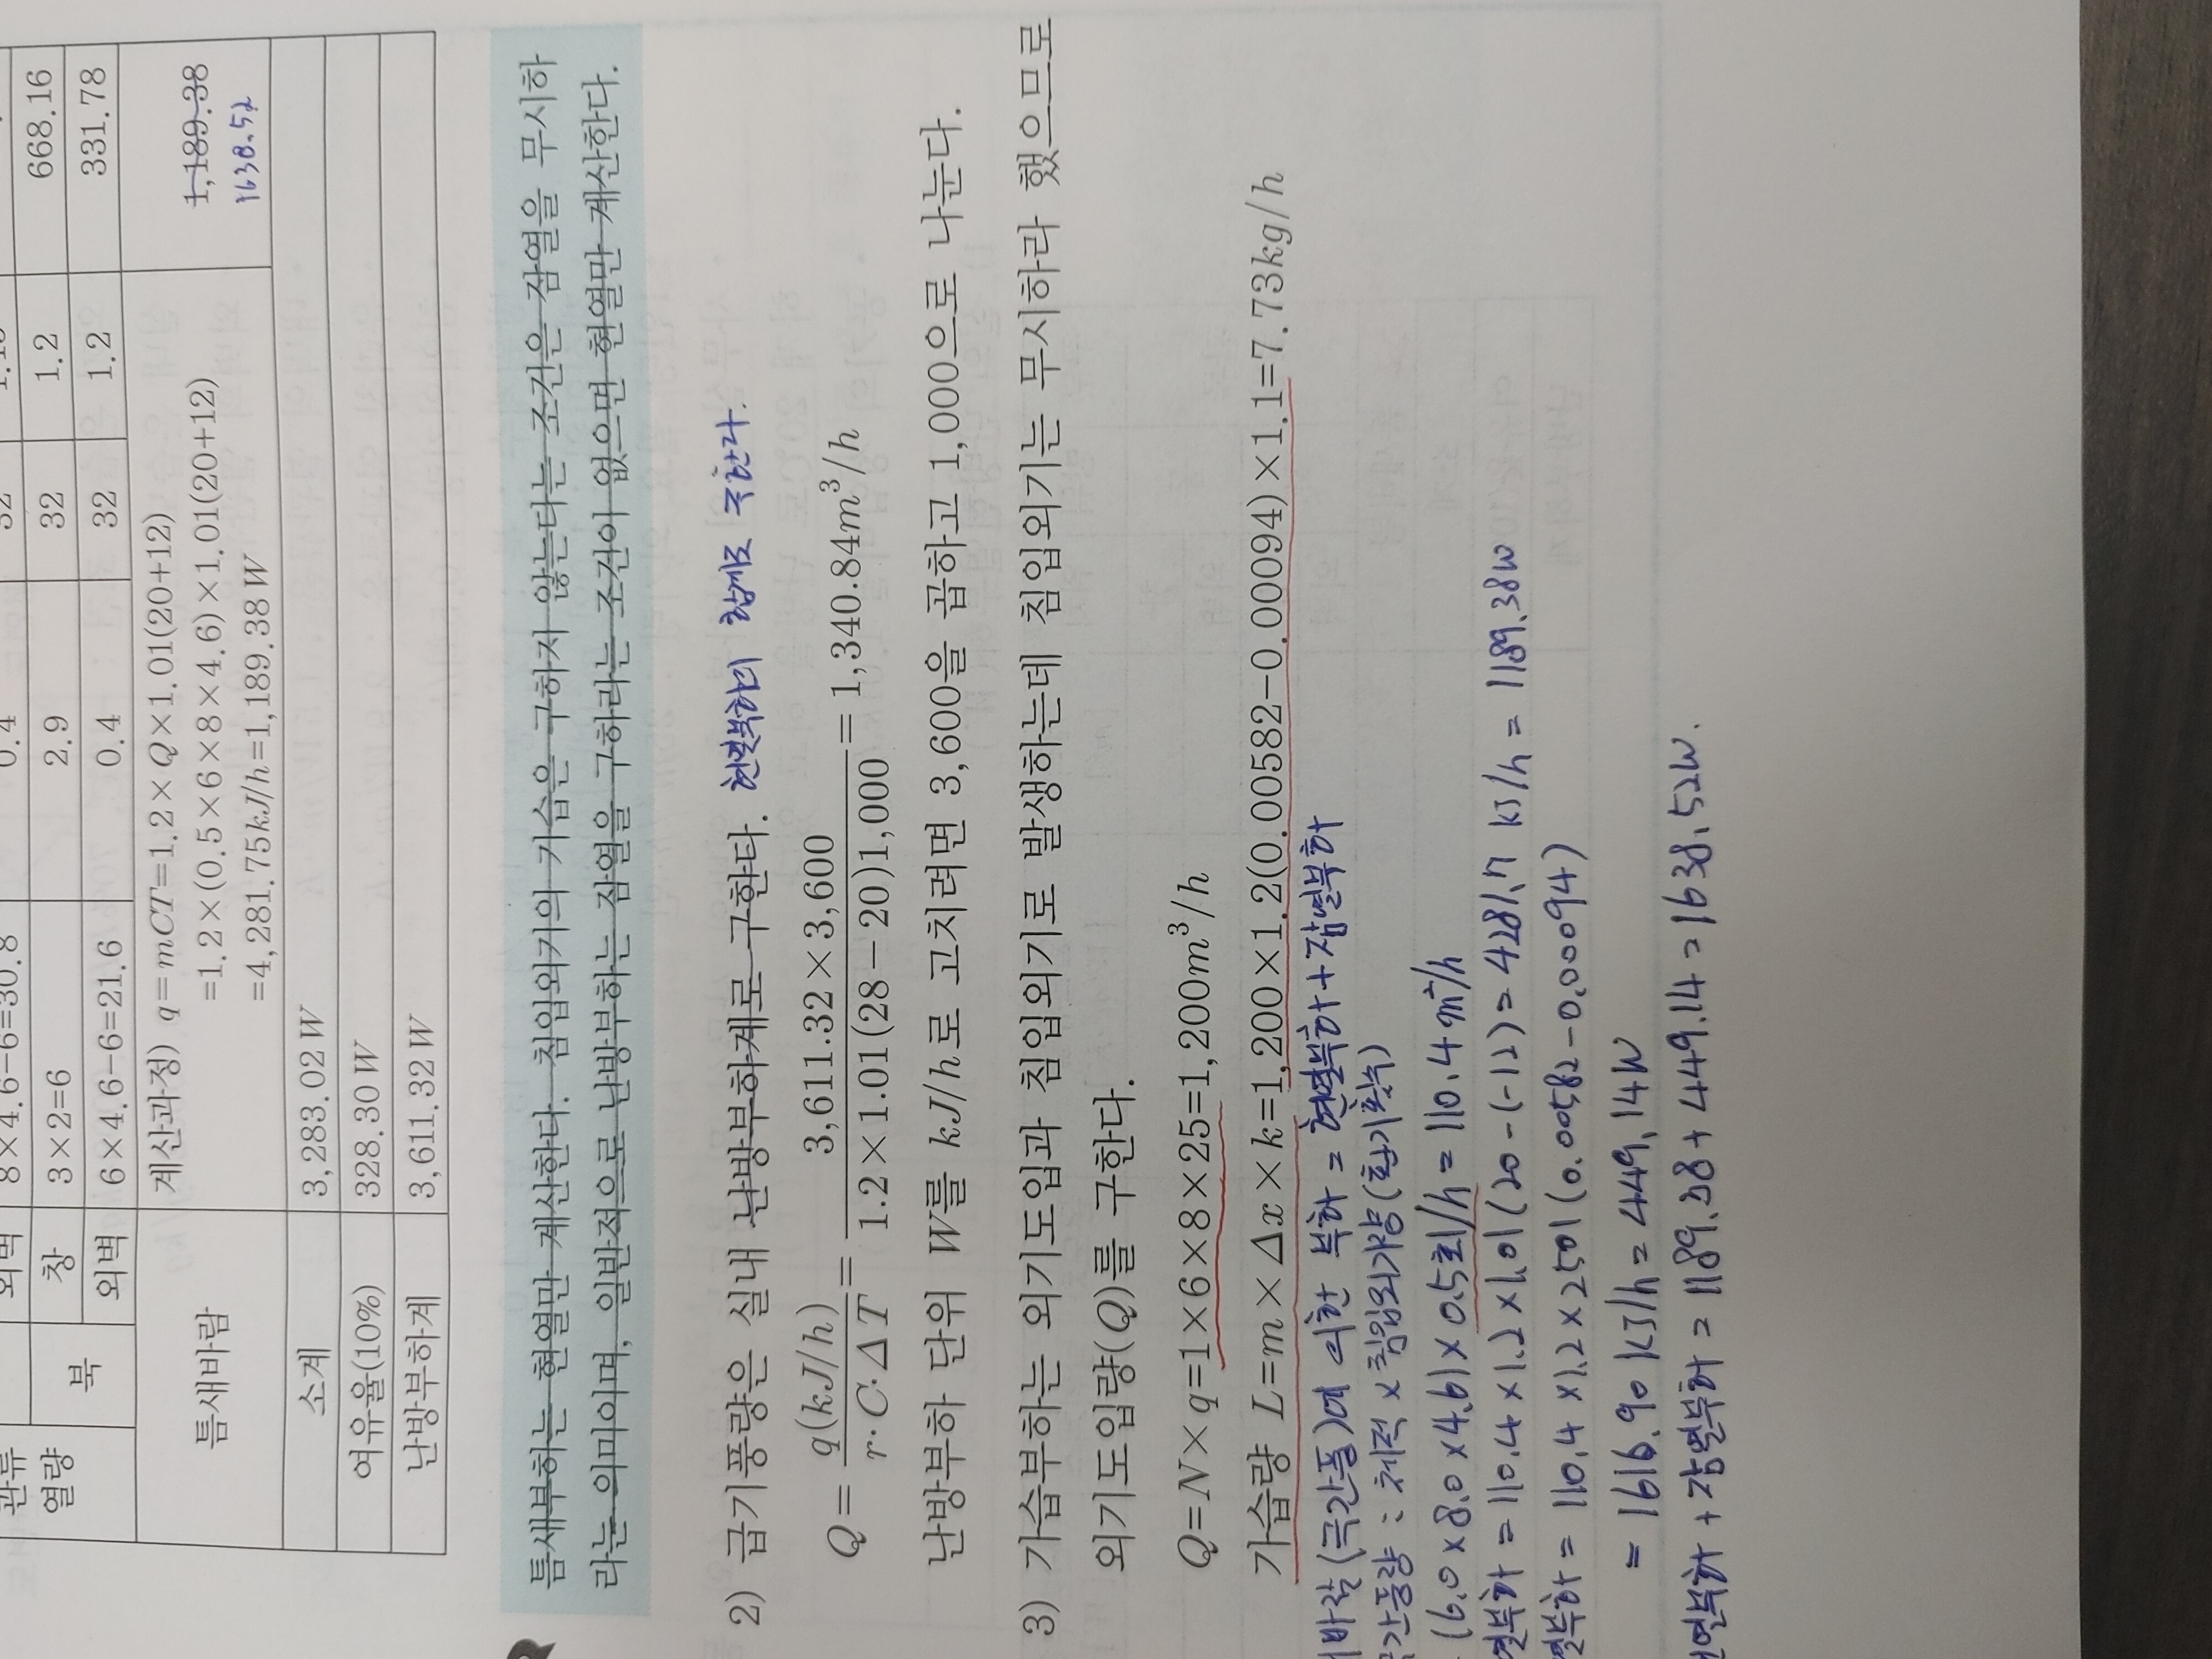 관류 열량
외벽 8×4.6−6=30.8 0.4 32
창 3×2=6 2.9 32 1.2 668.16
북
외벽 6×4.6−6=21.6 0.4 32 1.2 331.78
틈새바람
계산과정) q=mCT=1.2×Q×1.01(20+12)
=1.2×(0.5×6×8×4.6)×1.01(20+12)
=4,281.75kJ/h=1,189.38W
1,189.38
1638.52
소계 3,283.02W
여유율(10%) 328.30W
난방부하계 3,611.32W
틈새부하는 현열만 계산한다. 침입외기의 가습은 구하지 않는다는 조건은 잠열을 무시하
라는 의미이며, 일반적으로 난방부하는 잠열을 구하라는 조건이 없으면 현열만 계산한다.
2) 급기풍량은 실내 난방부하계로 구한다. 현열부하의 합계로 구한다.
Q = q(kJ/h) / r·C·ΔT = 3,611.32×3,600 / 1.2×1.01(28−20)1,000 = 1,340.84m³/h
난방부하 단위 W를 kJ/h로 고치려면 3,600을 곱하고 1,000으로 나눈다.
3) 가습부하는 외기도입과 침입외기로 발생하는데 침입외기는 무시하라 했으므로
외기도입량(Q)를 구한다.
Q=N×q=1×6×8×25=1,200m³/h
가습량 L=m×Δx×k=1,200×1.2(0.00582−0.00094)×1.1=7.73kg/h
새바람(극간풍)에 의한 부하 = 현열부하+잠열부하
극간풍량 : 체적 × 침입외기량(환기횟수)
(6.0×8.0×4.6)×0.5회/h = 110.4m³/h
현열부하 = 110.4×1.2×1.01(20−(−12)) = 4281.7 kJ/h = 1189.38W
잠열부하 = 110.4×1.2×2501(0.00582−0.00094)
= 1616.90 kJ/h = 449.14W
현열부하 + 잠열부하 = 1189.38+449.14 = 1638.52W.